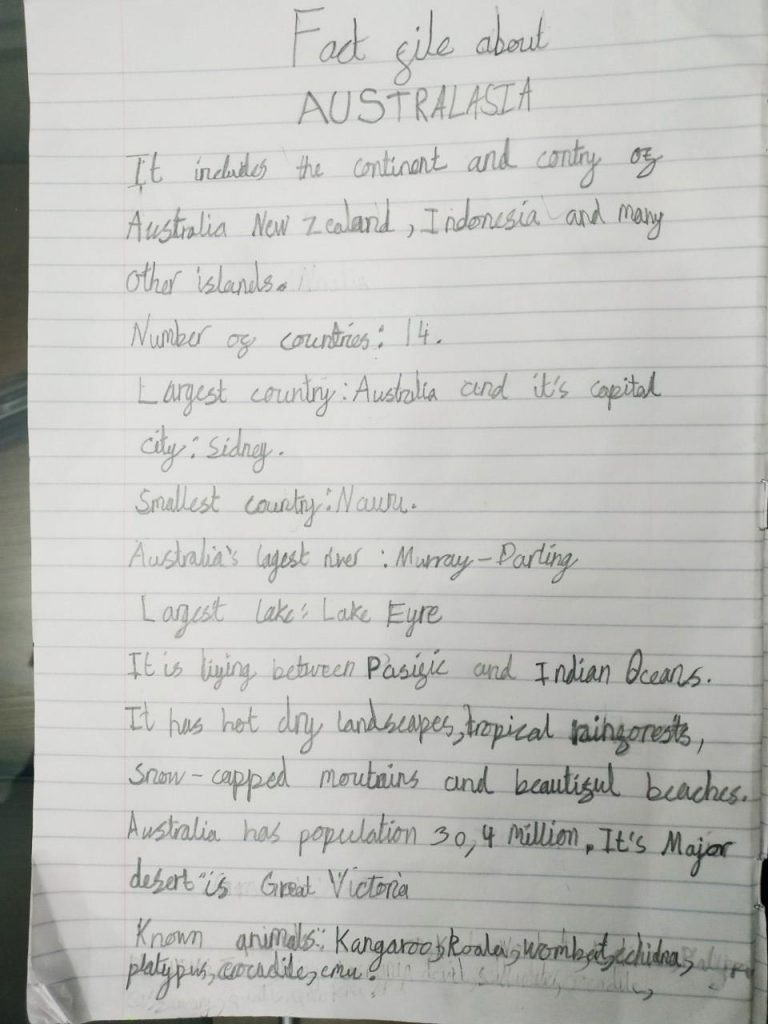 Fact file about
AUSTRALASIA
It includes the continent and contry of
Australia New Zealand, Indonesia and many
other islands.
Number of countries: 14.
Largest country: Australia and it's capital
city: Sidney.
Smallest country: Nauru.
Australia's lagest river : Murray-Darling
Largest lake: Lake Eyre
It is liying between Pasific and Indian Oceans.
It has hot dry landscapes, tropical rainforests,
snow-capped moutains and beautiful beaches.
Australia has population 30,4 million. It's Major
desert is Great Victoria
Known animals: Kangaroo, Koala, wombat, echidna,
platypus, crocadile, emu.